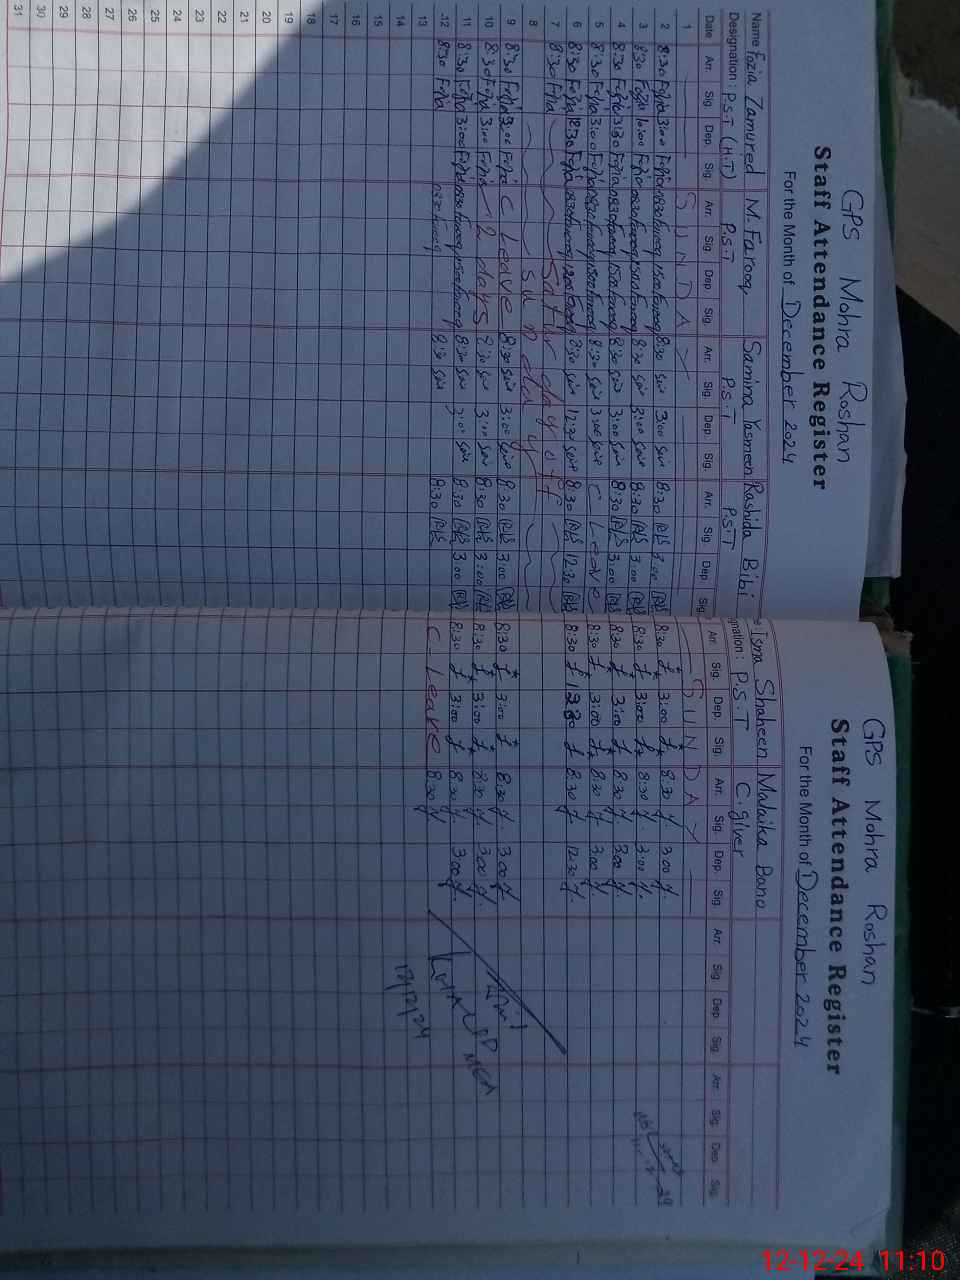 GPS Mohra Roshan
Staff Attendance Register
For the Month of December 2024
Name Fozia Zamured M. Farooq Samina Yasmeen Rashida Bibi
Designation: P.S.T (H.T) P.S.T P.S.T P.S.T
Date Arr. Sig. Dep. Sig. Arr. Sig. Dep. Sig. Arr. Sig. Dep. Sig. Arr. Sig. Dep. Sig.
1 SUNDAY
2 8:30 Fozia 3:00 Fozia 0830 Farooq 1500 Farooq 8:30 3:00 8:30 3:00
3 8:30 Fozia 10:00 Fozia 0830 Farooq 1500 Farooq 8:30 3:00 8:30 3:00
4 8:30 Fozia 3:30 Fozia 0830 Farooq 1500 Farooq 8:30 3:00 8:30 3:00
5 8:30 Fozia 3:00 Fozia 0830 Farooq 1500 Farooq 8:30 3:00 C Leave
6 8:30 Fozia 12:30 Fozia 0830 Farooq 1200 Farooq 8:30 12:30 8:30 12:30
7 8:30 Fozia Saturday off
8 Sunday
9 8:30 Fozia 3:00 Fozia C Leave 8:30 3:00 8:30 3:00
10 8:30 Fozia 3:00 Fozia 2 days 8:30 3:00 8:30 3:00
11 8:30 Fozia 3:00 Fozia 0830 Farooq 1500 Farooq 8:30 3:00 8:30 3:00
12 8:30 Fozia 0830 Farooq 8:30 8:30
13
14
15
16
17
18
19
20
21
22
23
24
25
26
27
28
29
30
31
GPS Mohra Roshan
Staff Attendance Register
For the Month of December 2024
Isma Shaheen Malaika Bano
Designation: P.S.T C.giver
Arr. Sig. Dep. Sig. Arr. Sig. Dep. Sig. Arr. Sig. Dep. Sig. Arr. Sig. Dep. Sig.
SUNDAY
8:30 3:00 8:30 3:00
8:30 3:00 8:30 3:00
8:30 3:00 8:30 3:00
8:30 3:00 8:30 3:00
8:30 1230 8:30 12:30
8:30 3:00 8:30 3:00
8:30 3:00 8:30 3:00
8:30 3:00 8:30 3:00
C-Leave 8:30
MEA
12/12/24
12-12-24 11:10